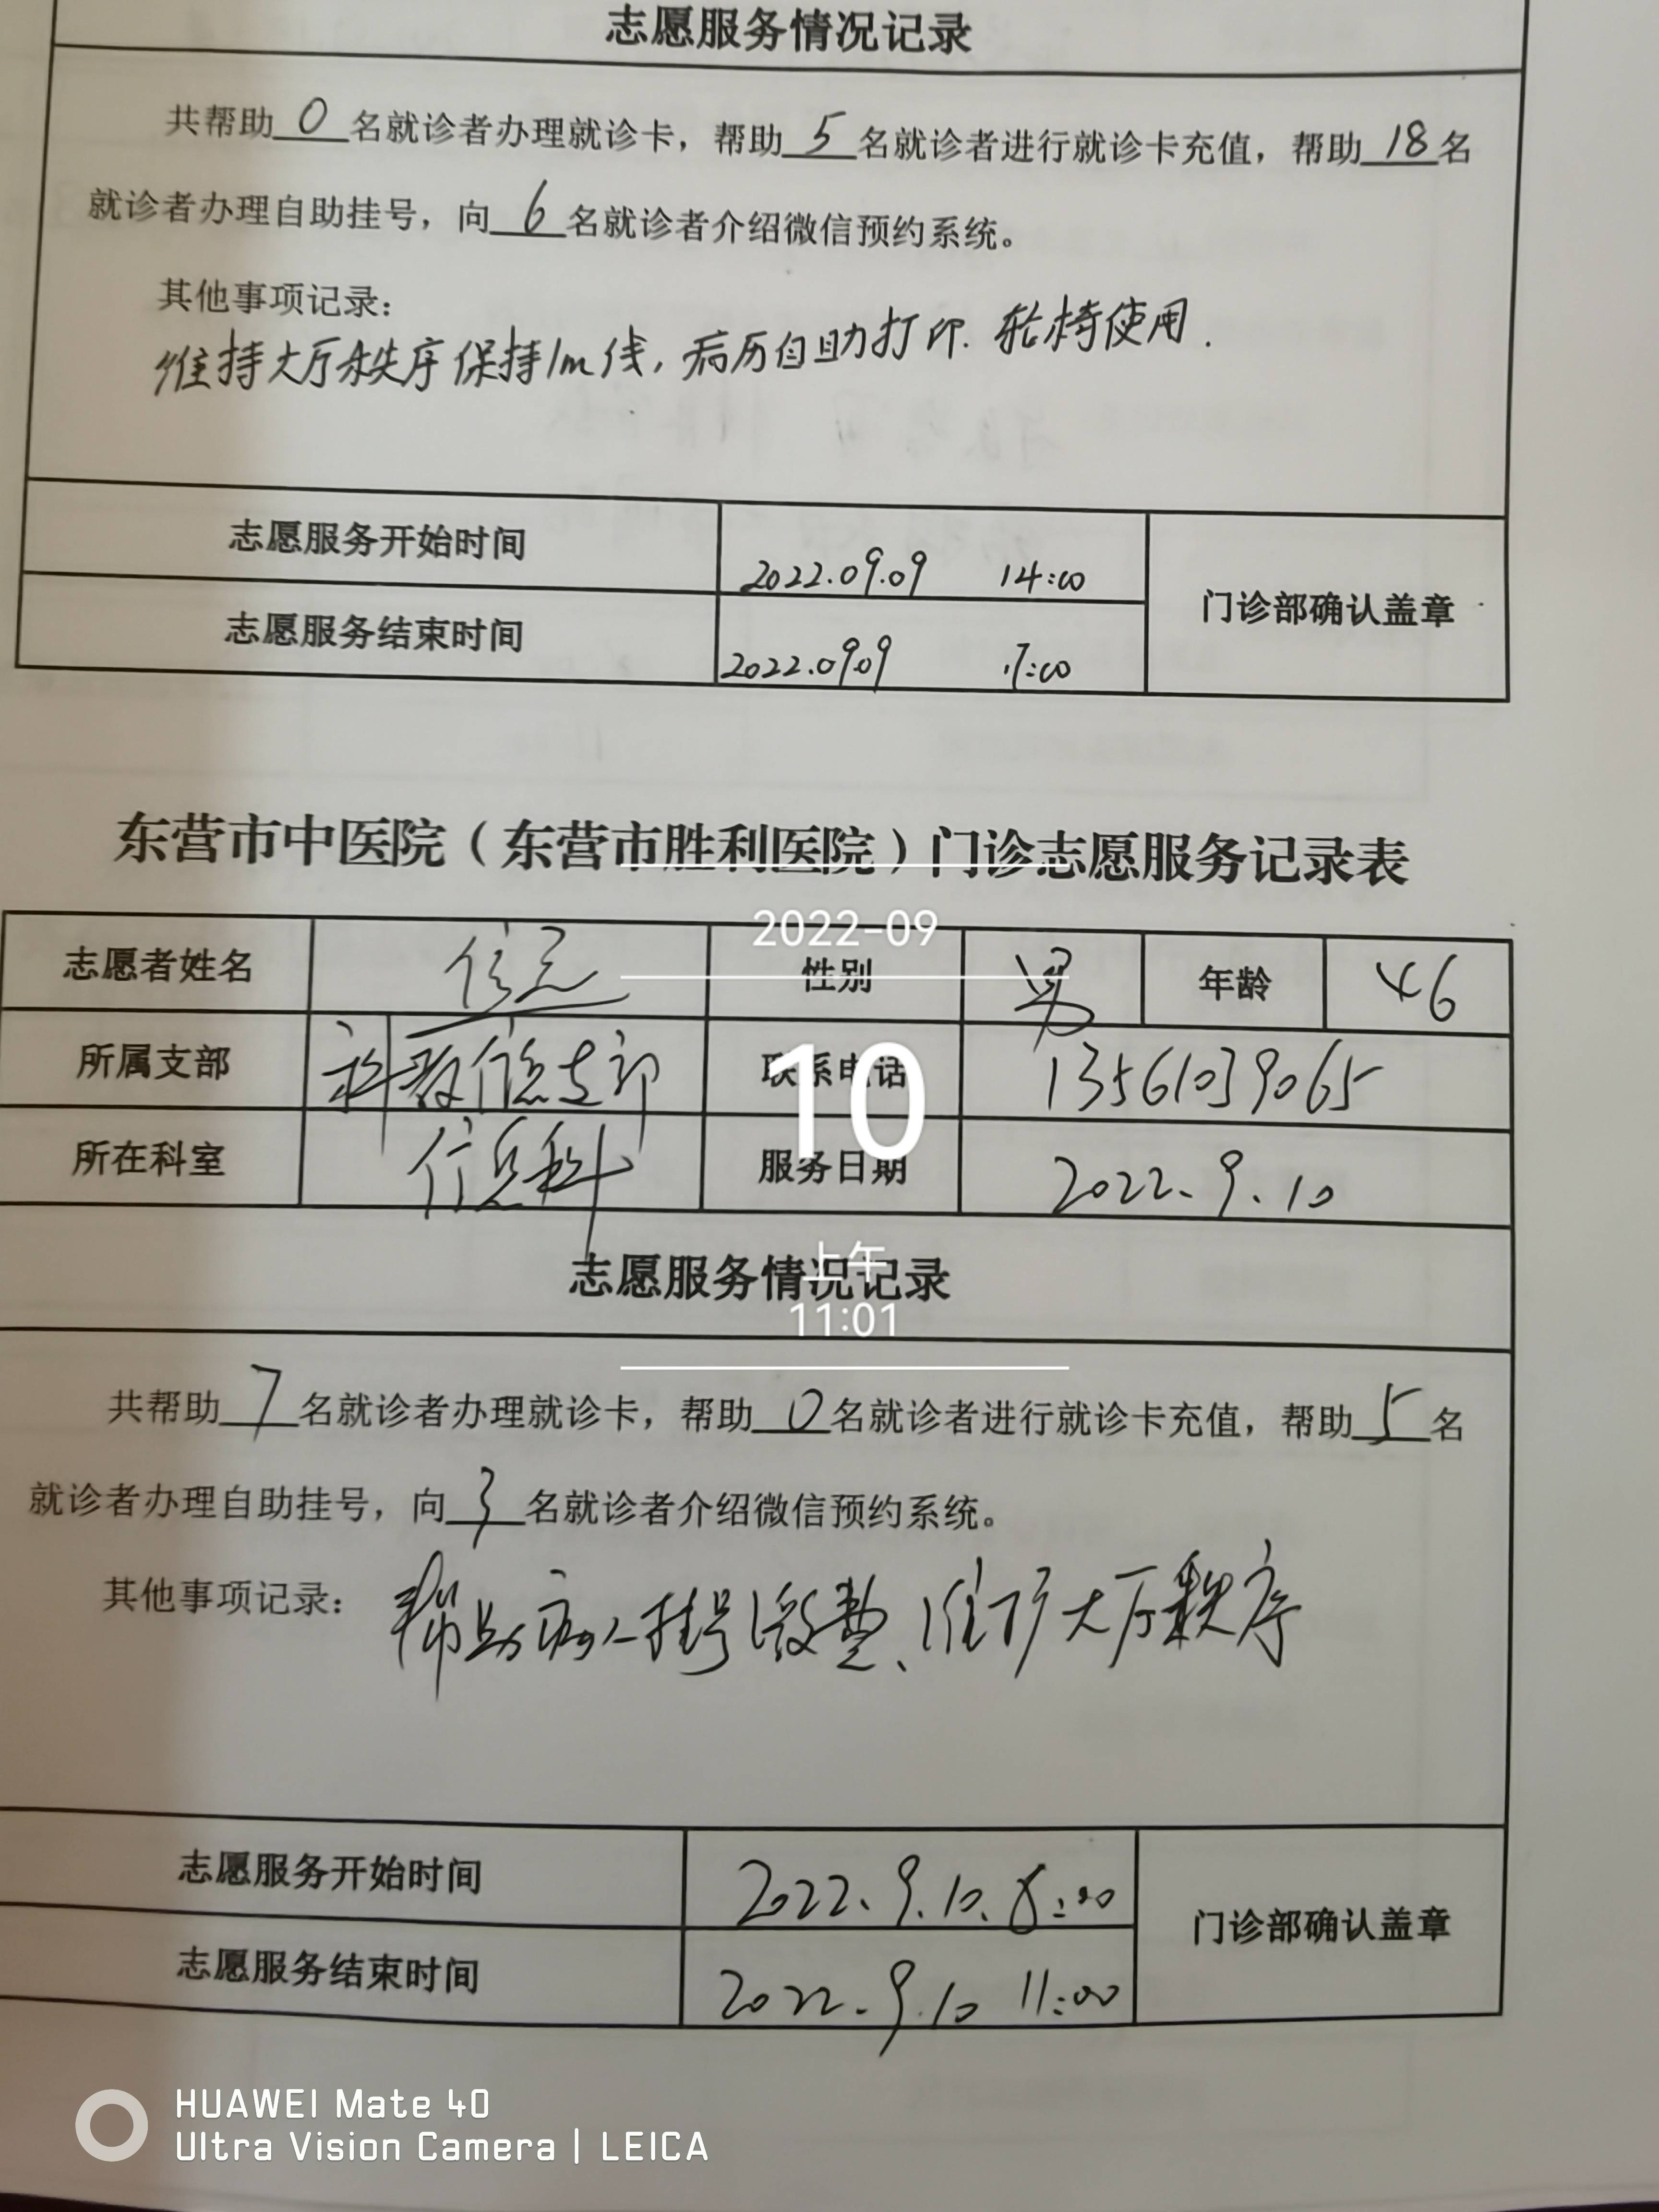 志愿服务情况记录
共帮助0名就诊者办理就诊卡，帮助5名就诊者进行就诊卡充值，帮助18名
就诊者办理自助挂号，向6名就诊者介绍微信预约系统。
其他事项记录：
维持大厅秩序保持1m线，病历自助打印.轮椅使用.
志愿服务开始时间 2022.09.09 14:00
门诊部确认盖章
志愿服务结束时间 2022.09.09 17:00
东营市中医院（东营市胜利医院）门诊志愿服务记录表
2022-09
志愿者姓名 性别 男 年龄 46
所属支部 科教信息支部 联系电话 13561039065
10
所在科室 信息科 服务日期 2022.9.10
志愿服务情况记录
上午
11:01
共帮助7名就诊者办理就诊卡，帮助0名就诊者进行就诊卡充值，帮助5名
就诊者办理自助挂号，向3名就诊者介绍微信预约系统。
其他事项记录：帮助病人挂号缴费、维护大厅秩序
志愿服务开始时间 2022.9.10.8:00
门诊部确认盖章
志愿服务结束时间 2022.9.10 11:00
HUAWEI Mate 40
Ultra Vision Camera | LEICA